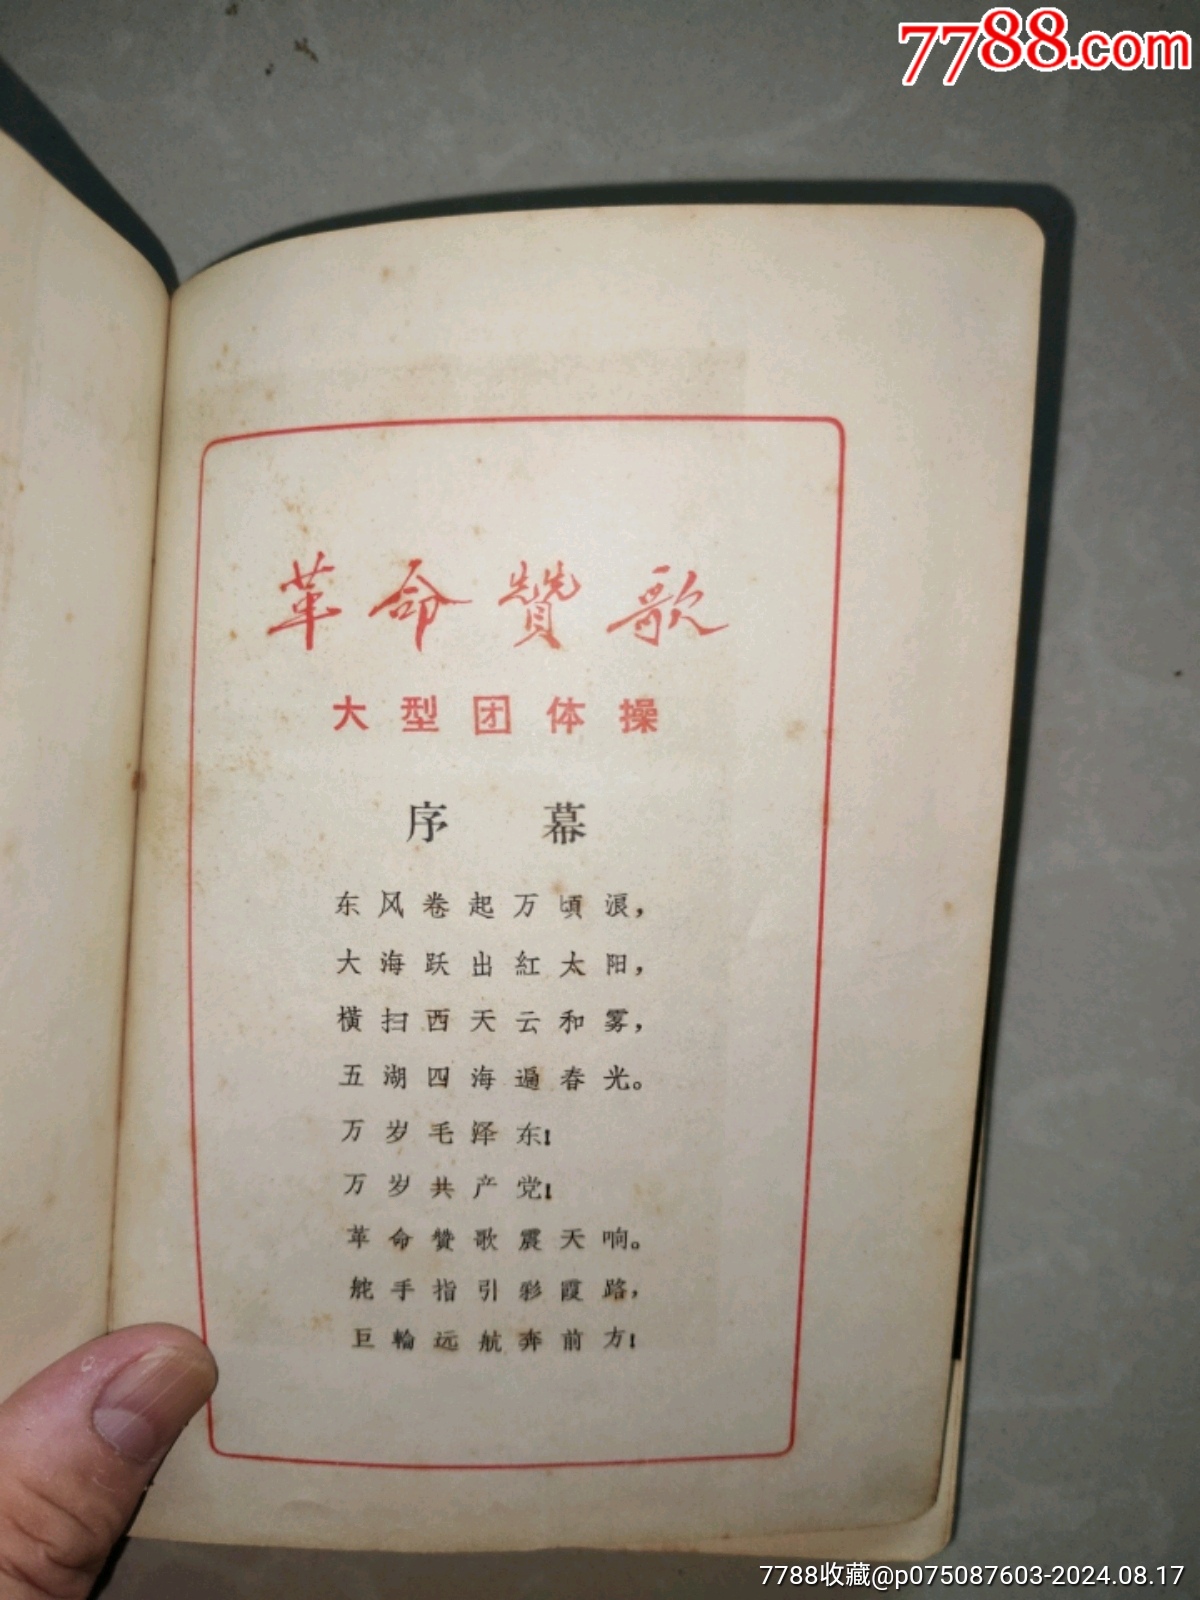 7788.com
革命赞歌
大型团体操
序幕
东风卷起万頃浪，
大海跃出紅太阳，
横扫西天云和雾，
五湖四海遍春光。
万岁毛泽东！
万岁共产党！
革命赞歌震天响。
舵手指引彩霞路，
巨輪远航奔前方！
7788收藏@p075087603-2024.08.17